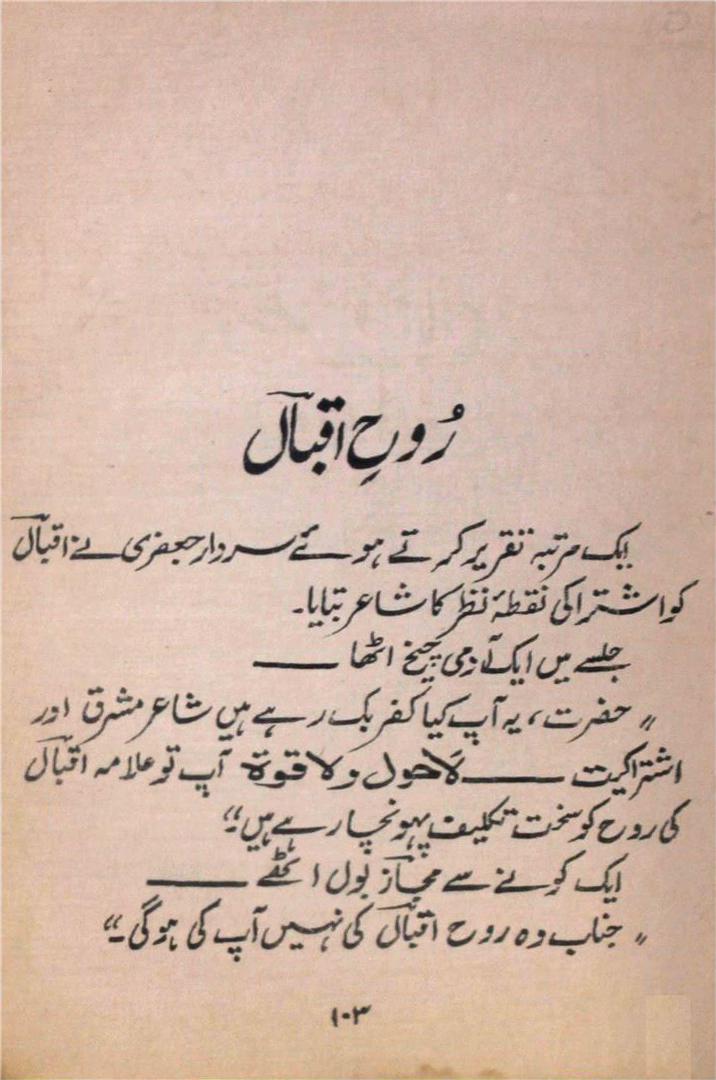 رُوحِ اقبالؔ
ایک مرتبہ تقریر کرتے ہوئے سردار جعفری نے اقبالؔ
کو اشتراکی نقطۂ نظر کا شاعر بتایا۔
جلسے میں ایک آدمی چیخ اٹھا ——
"حضرت، یہ آپ کیا کفر بک رہے ہیں شاعر مشرق اور
اشتراکیت —— لَاحول ولا قوة آپ تو علامہ اقبالؔ
کی روح کو سخت تکلیف پہونچا رہے ہیں"
ایک کونے سے مجازؔ بول اٹھے ——
"جناب وہ روح اقبالؔ کی نہیں آپ کی ہوگی۔"
۱۰۳